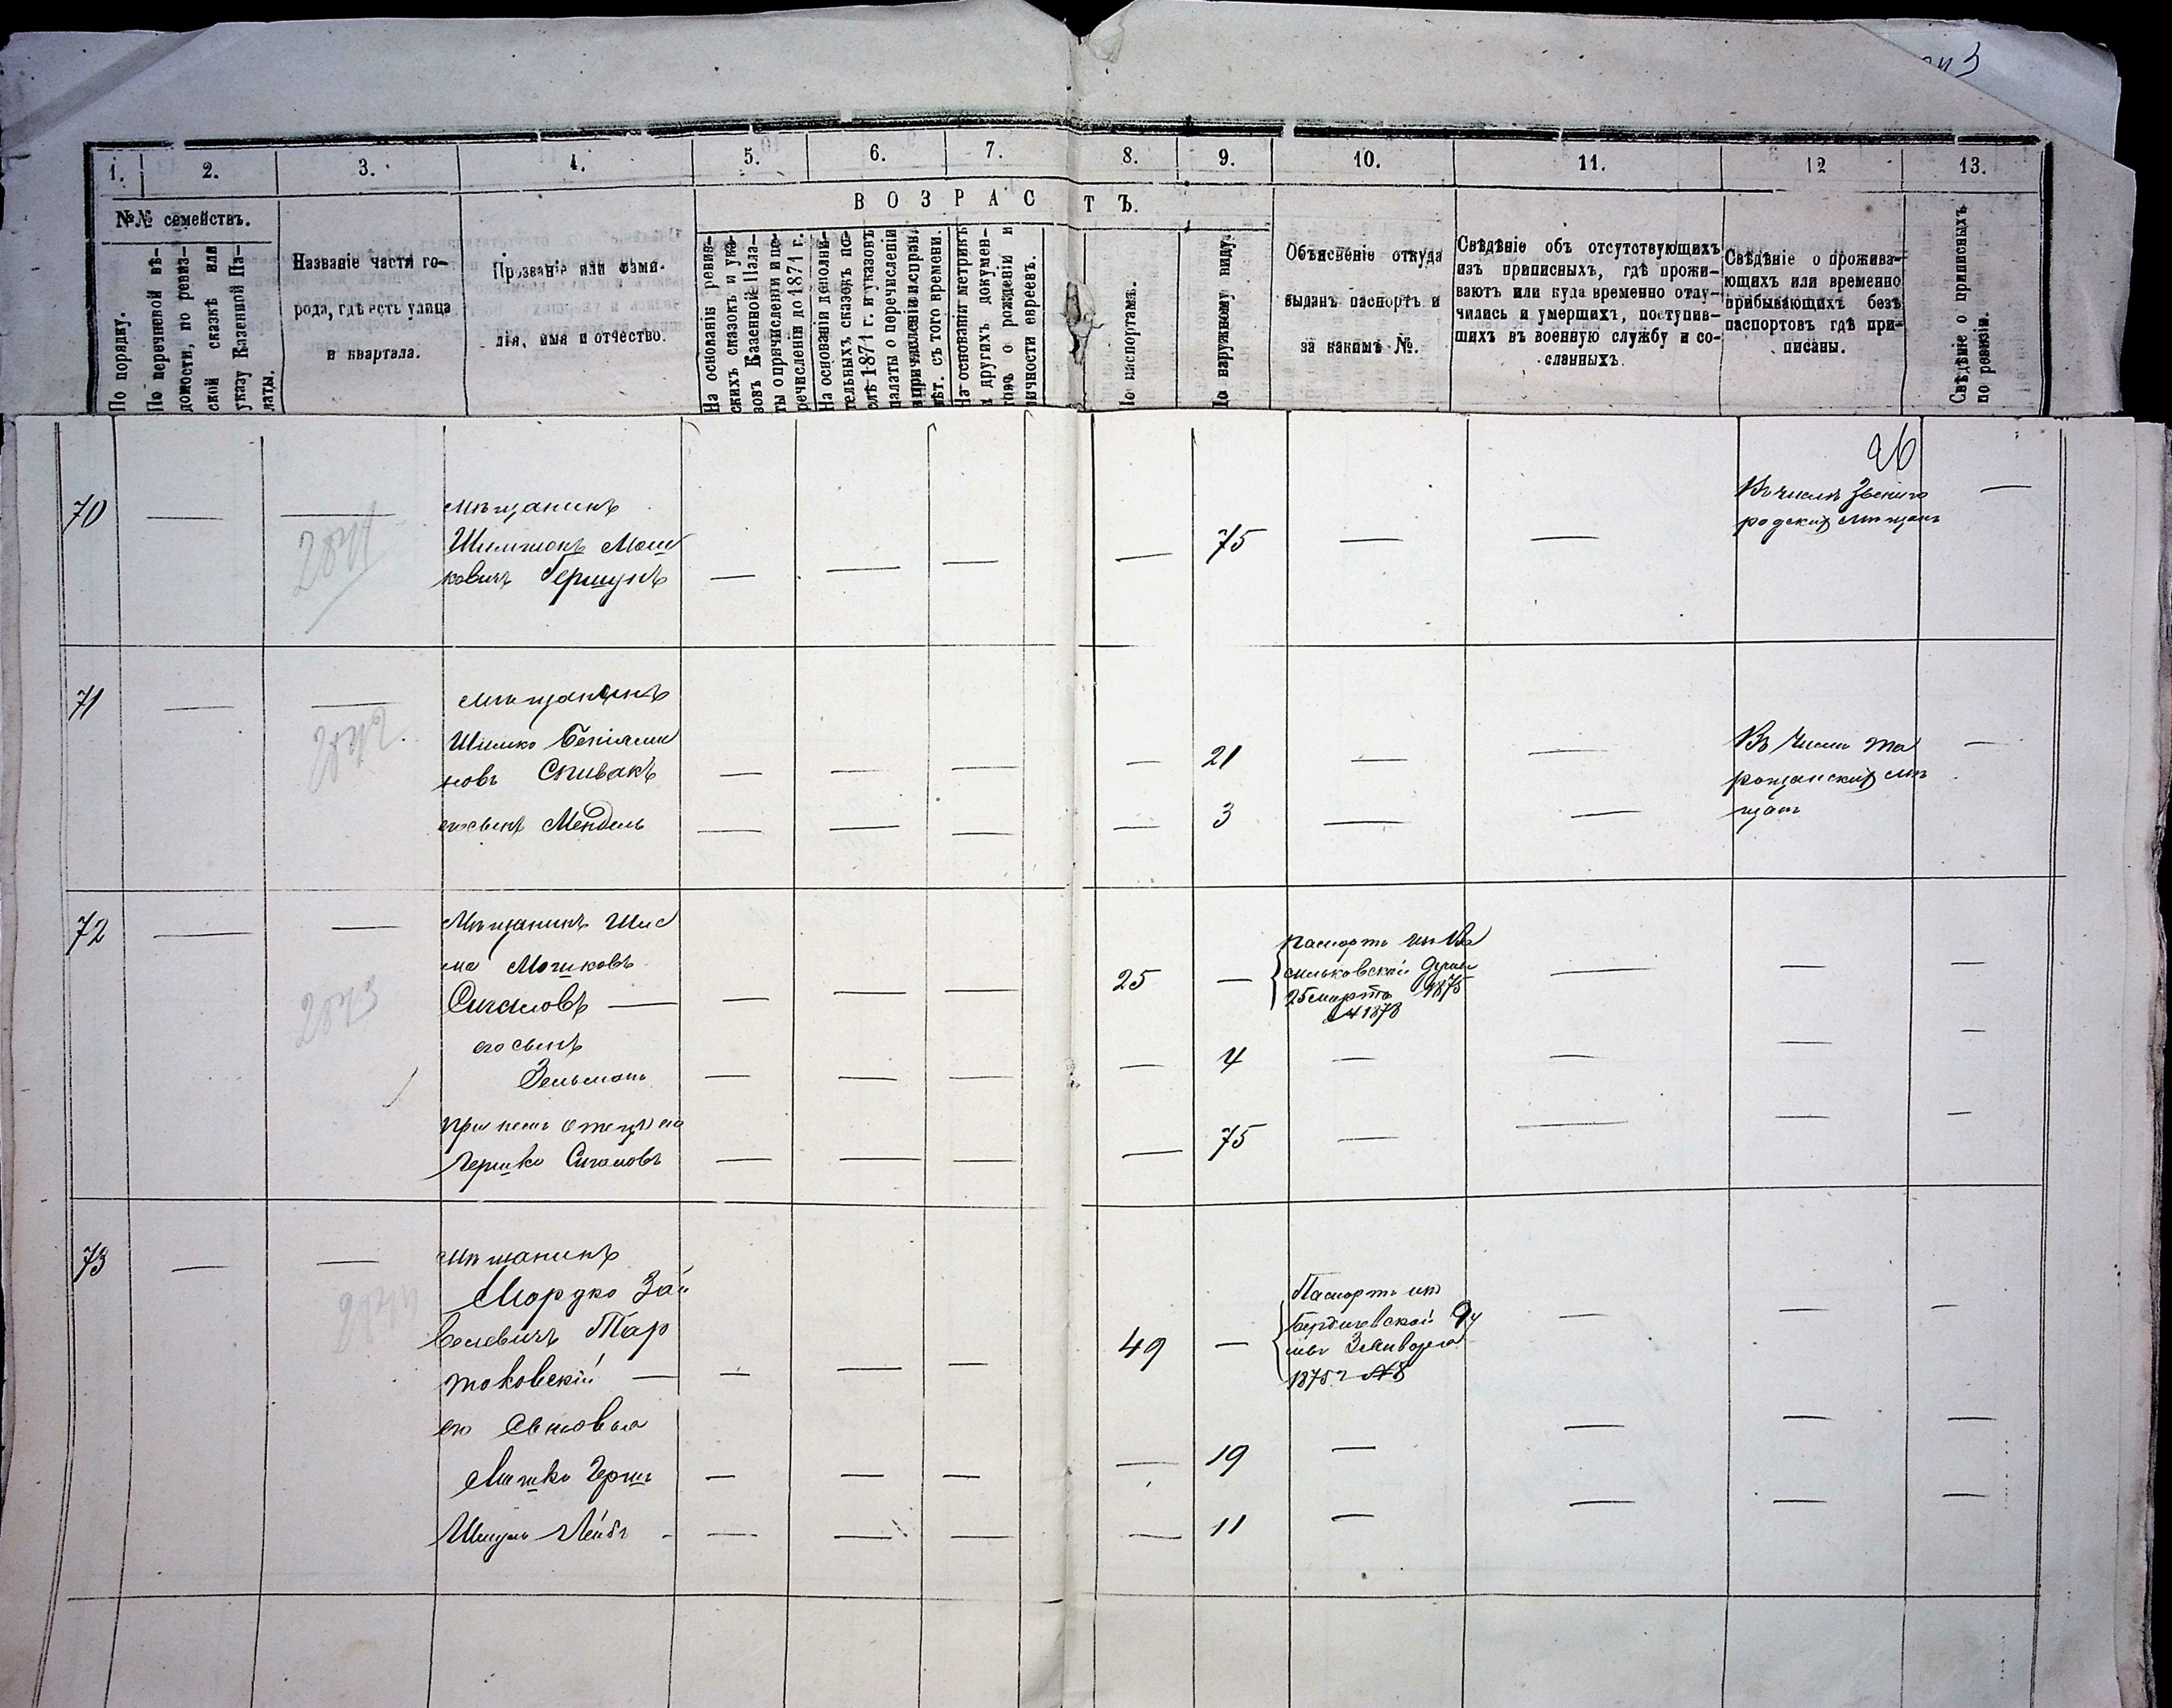 1. 2. 3. 4. 5. 6. 7. 8. 9. 10. 11. 12 13.
ВОЗРАСТЪ.
№№ семействъ.
По порядку.
По перечневой вѣ-
домости, по ревиз-
ской сказкѣ или
указу Казенной Па-
латы.
Названіе части го-
рода, гдѣ есть улица
и квартала.
Прозваніе или фами-
лія, имя и отчество.
На основаніи ревиз-
скихъ сказокъ и ука-
зовъ Казенной Пала-
ты о причисленіи и пе-
речисленіи до 1871 г.
На основаніи дополни-
тельныхъ сказокъ по-
слѣ 1871 г. и указовъ
палаты о перечисленіи
и причисленіи исправ.
лѣт. съ того времени.
На основаніи метрикъ
и другихъ докумен-
товъ о рожденіи и
личности евреевъ.
По паспортамъ.
По наружному виду.
Объясненіе откуда
выданъ паспортъ и
за какимъ №.
Свѣдѣніе объ отсутствующихъ
изъ приписныхъ, гдѣ прожи-
ваютъ или куда временно отлу-
чились и умершихъ, поступив-
шихъ въ военную службу и со-
сланныхъ.
Свѣдѣніе о прожива-
ющихъ или временно
прибывающихъ безъ
паспортовъ гдѣ при-
писаны.
Свѣдѣніе о приписныхъ
по ревизіи.
26
70 — — мѣщанинъ
Шимшонъ Мош
ковичъ Гершунъ — — — — 75 — — Въ числѣ Звениго
родскихъ мѣщанъ —
71 — — мѣщанинъ
Шлимко Беніами
новъ Спивакъ — — — — 21 — — Въ числѣ Та
ращанскихъ мѣ
щанъ —
его сынъ Мендель — — — — 3 — —
72 — — Мѣщанинъ
Мошковъ
Сигаловъ — — — — 25 — Паспортъ изъ Ва
сильковской Думы
25 марта 1875
№ 1878 — — —
его сынъ
Зельманъ — — — — 4 — — — —
при немъ отецъ его
Гершко Сигаловъ — — — — 75 — — — —
73 — — мѣщанинъ
Мордко Зай
велевичъ Тар
токовскій — — — — 49 — Паспортъ изъ
Бердичевской Ду
мы
1875 г № — — —
его сыновья
Мошко Герш — — — — 19 — — — —
Шмуль Лейбъ — — — — 11 — — — —
2843